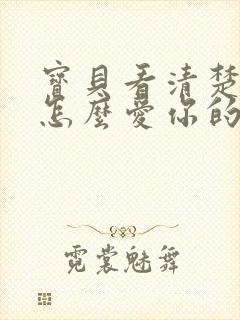 寶貝看清楚
怎麼愛你的
霓裳魅舞